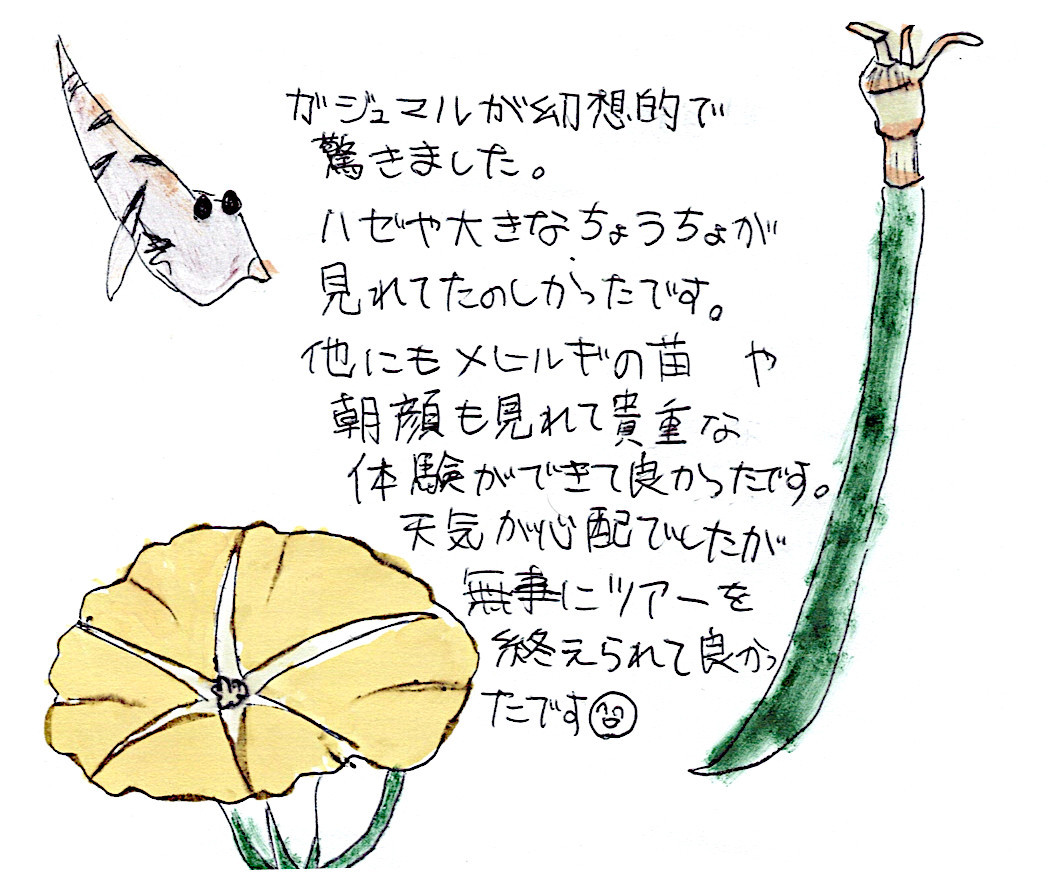 ガジュマルが幻想的で
驚きました。
ハゼや大きなちょうちょが
見れてたのしかったです。
他にもメヒルギの苗 や
朝顔も見れて貴重な
体験ができて良かったです。
天気が心配でしたが
無事にツアーを
終えられて良かっ
たです